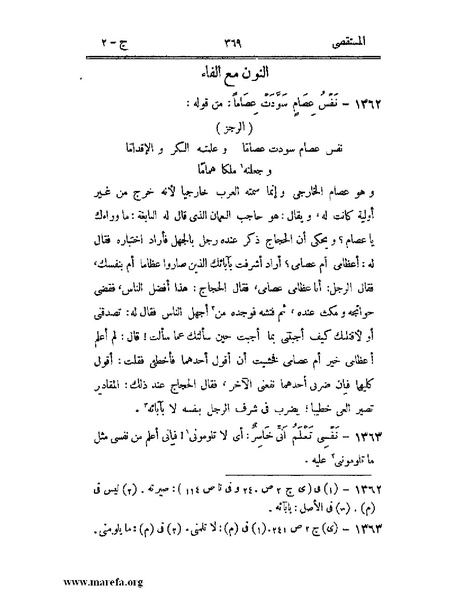 المستقصى ٣٦٩ ج - ٢
النون مع الفاء
١٣٦٢ - نَفْسُ عِصَامٍ سَوَّدَتْ عِصَاماً: من قوله:
(الرجز)
نفس عصام سودت عصامًا و علمته الكر و الإقدامًا
و جعلته١ ملكا همامًا
و هو عصام الخارجى و إنما سمته العرب خارجيا لأنه خرج من غير
أولية كانت له، و يقال: هو حاجب النعمان الذى قال له النابغة: ما وراءك
يا عصام؟ و يحكى أن الحجاج ذكر عنده رجل بالجهل فأراد اختباره فقال
له: أعظامى أم عصامى؟ أراد أشرفت بآبائك الذين صاروا عظاما أم بنفسك،
فقال الرجل: أنا عظامى عصامى، فقال الحجاج: هذا أفضل الناس، فقضى
حوائجه و مكث عنده، ثم فتشه فوجده من٢ أجهل الناس فقال له: تصدقنى
أو لأقتلنك كيف أجبتنى بما أجبت حين سألتك عما سألت! قال: لم أعلم
أعظامى خير أم عصامى فخشيت أن أقول أحدهما فأخطئ فقلت: أقول
كليهما فإن ضرنى أحدهما نفعنى الآخر، فقال الحجاج عند ذلك: المقادير
تصير العى خطيبا؛ يضرب فى شرف الرجل بنفسه لا بآبائه٣.
١٣٦٣ - نَفْسِى تَعْلَمُ أَنِّى خَاسِرٌ: أى لا تلومونى١ فإنى أعلم من نفسى مثل
ما تلومونى٢ عليه.
١٣٦٢ - (١) فى (ى ج ٢ ص ٢٤٠ و فى تا ص ١١٤): صيرته. (٢) ليس فى
(م). (٣) فى الأصل: بابائه.
١٣٦٣ - (ى) ج ٢ ص ٢٤١. (١) فى (م): لا تلمنى. (٢) فى (م): ما يلومنى.
www.marefa.org